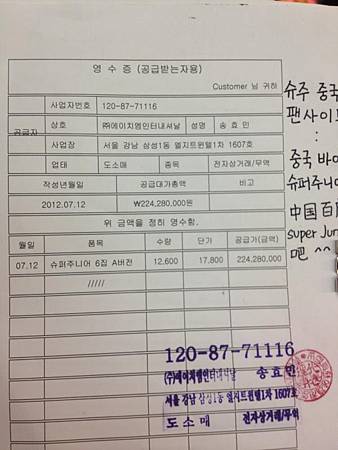 영 수 증 (공급받는자용)
Customer 님 귀하
공급자
사업자번호 120-87-71116
상호 ㈜에이치엠인터내셔날 성명 송 효 민
사업장 서울 강남 삼성1동 엘지트윈텔1차 1607호
업태 도소매 종목 전자상거래/무역
작성년월일 공급대가총액 비고
2012.07.12 ₩224,280,000원
위 금액을 정히 영수함.
월일 품목 수량 단가 공급가(금액)
07.12 슈퍼주니어 6집 A버전 12,600 17,800 224,280,000
/////
120-87-71116
(주)에이치엠인터내셔날 송효민
서울 강남 삼성1동 엘지트윈텔1차 1607호
도소매 전자상거래/무역
슈주 중국
팬사이트
:
중국 바이
슈퍼주니어
中国百
super Jun
吧 ^^